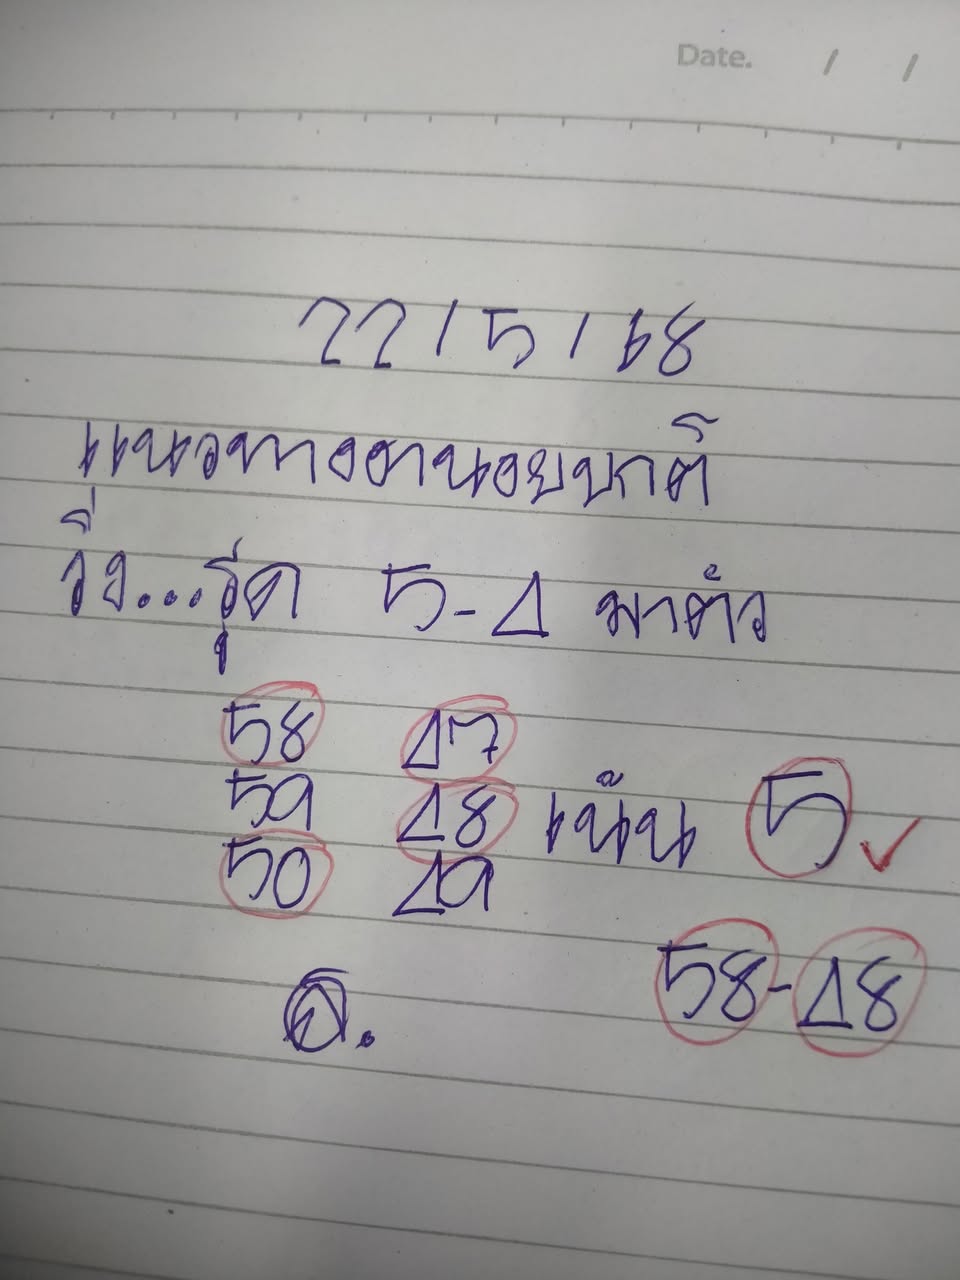 Date. / /
22/5/68
แนวทางฮานอยชาติ
วิ่ง...รูด 5-4 มาตัว
58 47
59 48 เน้น 5
50 49
58-48
อ.